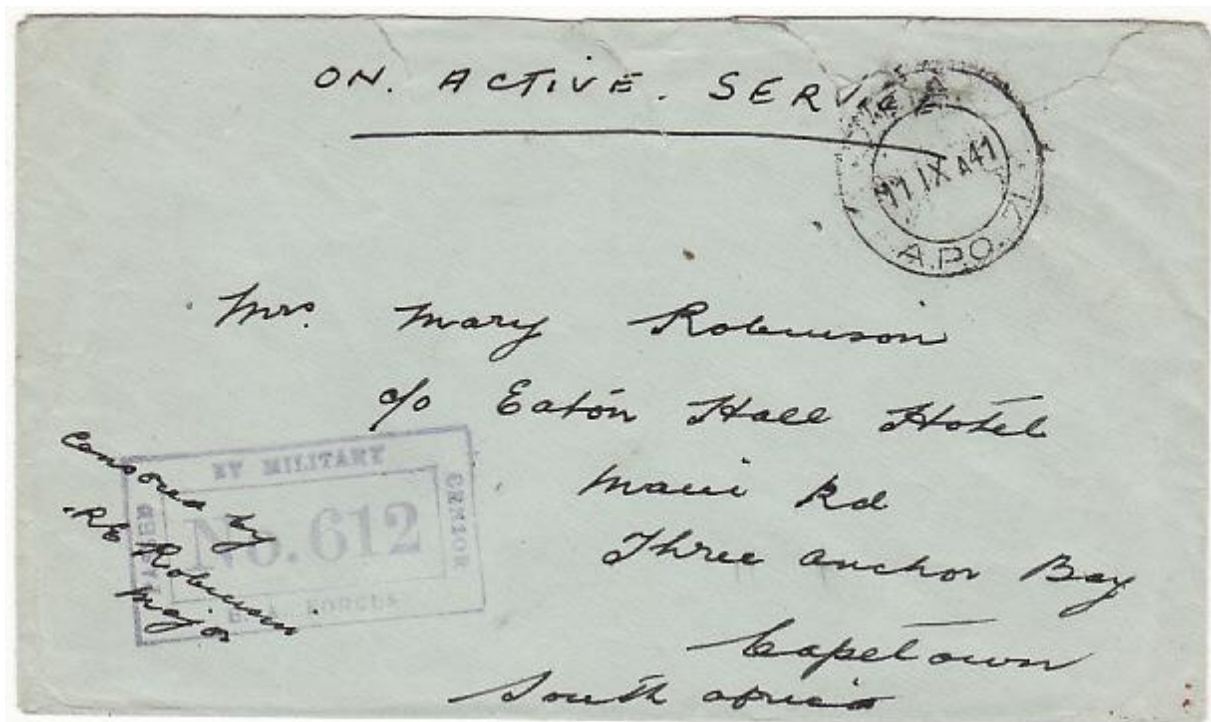 ON. ACTIVE. SERVICE
11 IX A 41
A.P.O.
Mrs. Mary Robinson
c/o Eaton Hall Hotel
Main Rd
Three Anchor Bay
Capetown
South Africa
BY MILITARY
CENSOR
No. 612
FORCES
Censored by
RE Robinson
Major